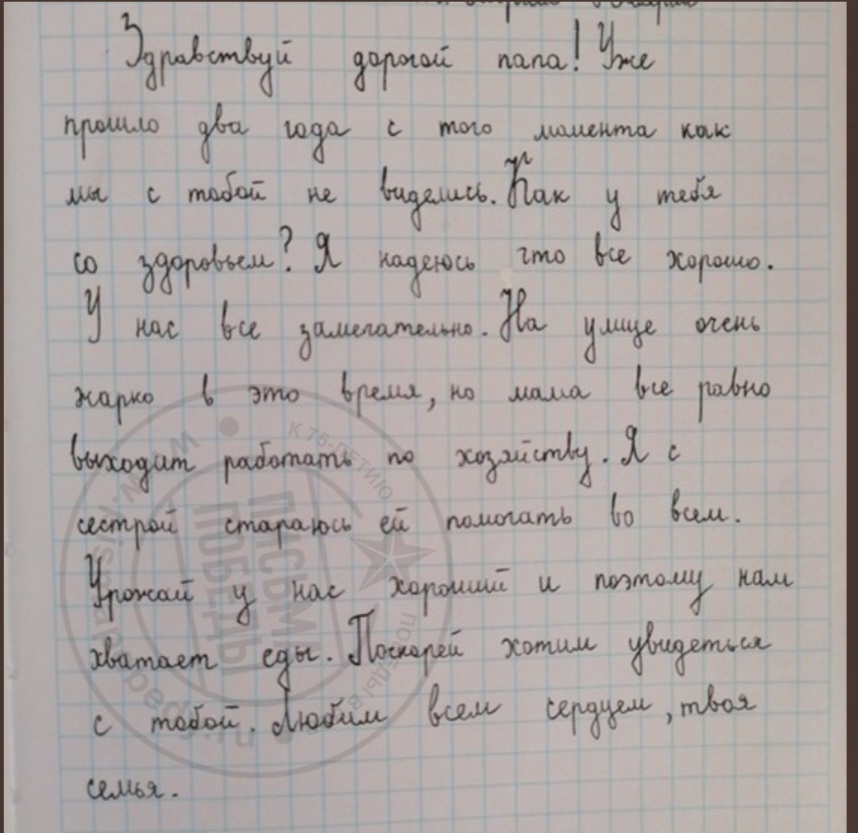 Здравствуй дорогой папа! Уже
прошло два года с того момента как
мы с тобой не виделись. Как у тебя
со здоровьем? Я надеюсь что все хорошо.
У нас все замечательно. На улице очень
жарко в это время, но мама все равно
выходит работать по хозяйству. Я с
сестрой стараюсь ей помогать во всем.
Урожай у нас хороший и поэтому нам
хватает еды. Поскорей хотим увидеться
с тобой. Любим всем сердцем, твоя
семья.
К 75-ЛЕТИЮ
ПОБЕДЫ В
ПИСЬМО
ПОБЕДЫ